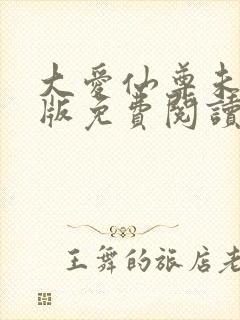 大愛仙尊未
版免費閱讀
王舞的旅店老